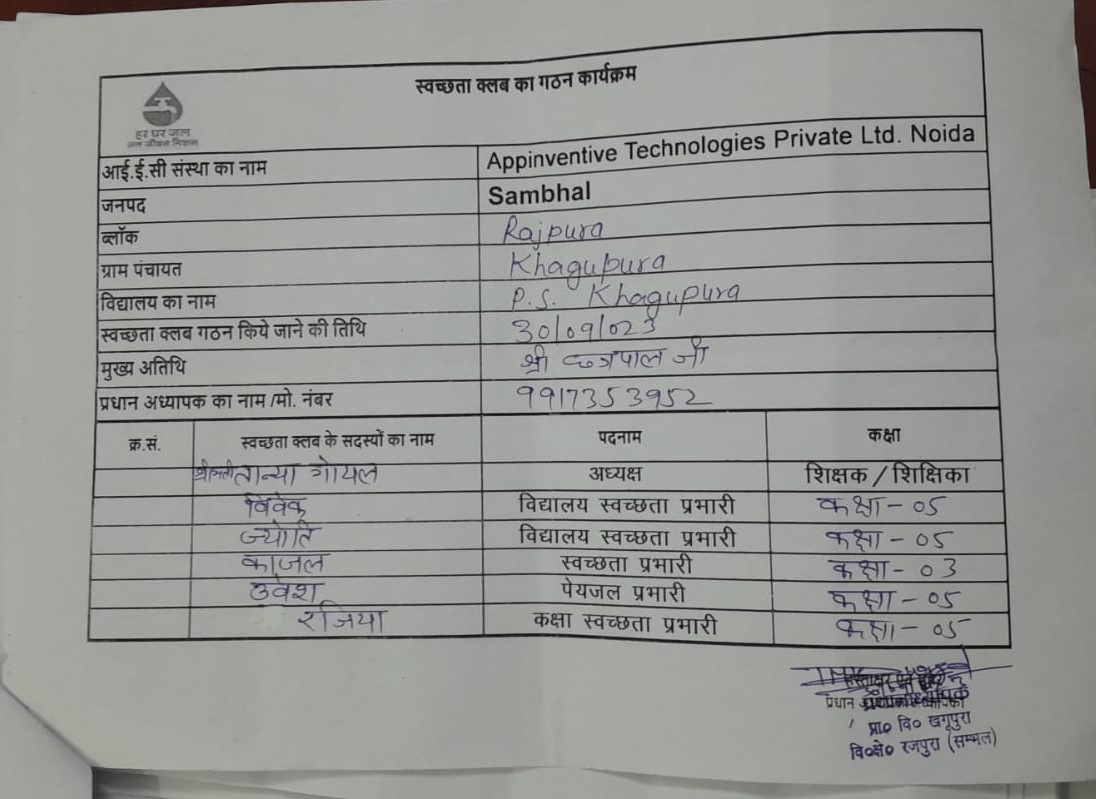 स्वच्छता क्लब का गठन कार्यक्रम
हर घर जल
जल जीवन मिशन
आई.ई.सी संस्था का नाम Appinventive Technologies Private Ltd. Noida
जनपद Sambhal
ब्लॉक Rajpura
ग्राम पंचायत Khagupura
विद्यालय का नाम P.S. Khagupura
स्वच्छता क्लब गठन किये जाने की तिथि 30/09/023
मुख्य अतिथि श्री छत्रपाल जी
प्रधान अध्यापक का नाम /मो. नंबर 9917353952
क्र.सं. स्वच्छता क्लब के सदस्यों का नाम पदनाम कक्षा
श्रीमती तान्या गोयल अध्यक्ष शिक्षक / शिक्षिका
विवेक विद्यालय स्वच्छता प्रभारी कक्षा - 05
ज्योति विद्यालय स्वच्छता प्रभारी कक्षा - 05
काजल स्वच्छता प्रभारी कक्षा - 03
उवेश पेयजल प्रभारी कक्षा - 05
रजिया कक्षा स्वच्छता प्रभारी कक्षा - 05
प्रधान
प्रा० वि० खगूपुरा
वि०क्षे० रजपुरा (सम्भल)